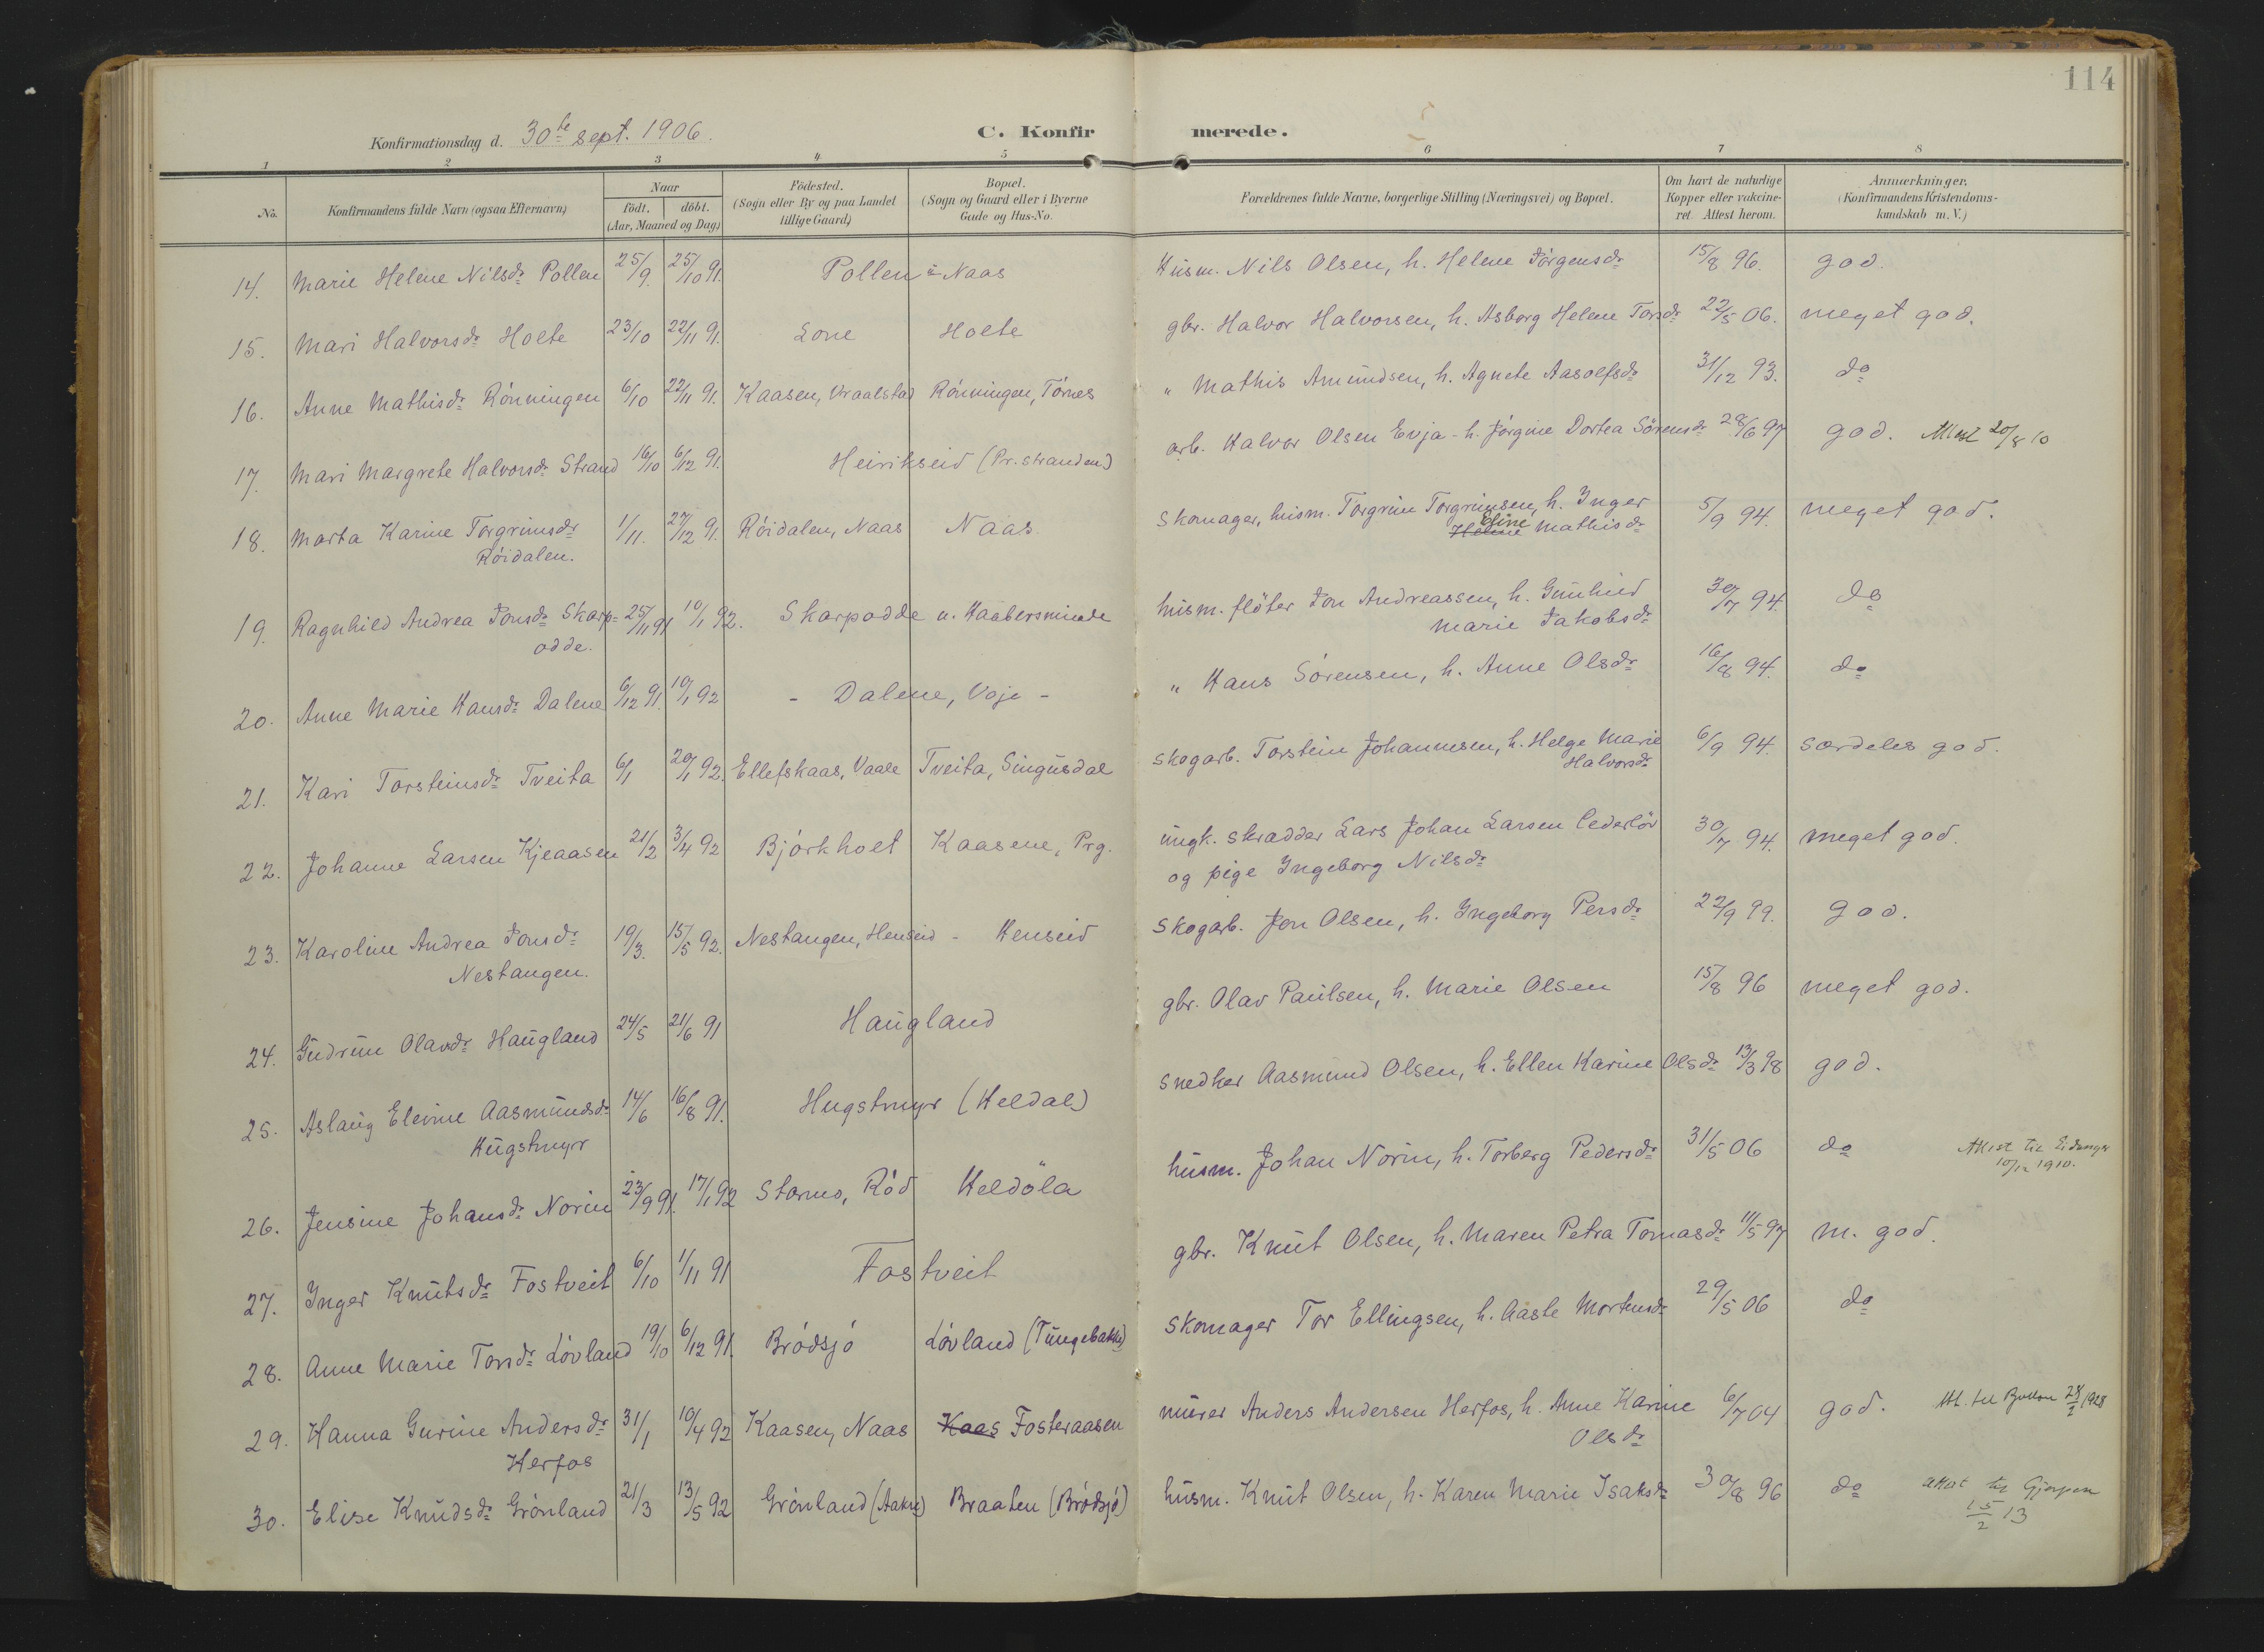 114
Konfirmationsdag d. 30te sept. 1906.
C. Konfirmerede.
1 2 3 4 5 6 7 8
No. Konfirmandens fulde Navn (ogsaa Efternavn) Naar födt. döbt. (Aar, Maaned og Dag) Födested. (Sogn eller By og paa Landet tillige Gaard) Bopæl. (Sogn og Gaard eller i Byerne Gade og Hus-No. Forældrenes fulde Navne, borgerlige Stilling (Næringsvei) og Bopæl. Om havt de naturlige Kopper eller vakcineret. Attest herom. Anmærkninger. (Konfirmandens Kristendomskundskab m. V.)
14. Marie Helene Nilsdr Pollen 25/9. 25/10 91. Pollen u. Naas Husm. Nils Olsen, h. Helene Jörgensdr 15/8 96. god.
15. Mari Halvorsdr Holte 23/10 22/11 91. Lone Holte gbr. Halvor Halvorsen, h. Asborg Helene Torsdr 22/5 06. meget god.
16. Anne Mathisdr Rönningen 6/10 22/11 91. Kaasen, Vraalstad Rönningen, Törnes " Mathis Amundsen, h. Agnete Aasolfsdr 31/12 93. do
17. Mari Margrete Halvorsdr Strand 16/10 6/12 91. Heirikseid (Pr. stranden) arb. Halvor Olsen Evja - h. Jörgine Dortea Sörensdr 28/6 97 god. Attest 20/8 10
18. Marta Karine Torgrimsdr 1/11. 27/12 91. Röidalen, Naas Naas. Skomager, husm. Torgrim Torgrimsen, h. Inger 5/9 94. meget god.
Röidalen. Helene Eline Mathisdr
19. Ragnhild Andrea Jonsdr Skarp- 25/11 91 10/1 92. Skarpodde u. Haabersminde husm. flöter Jon Andreassen, h. Gunhild 30/7 94. do
odde. Marie Jakobsdr
20. Anne Marie Hansdr Dalene 6/12 91. 10/1 92 - Dalene, Voje - " Hans Sörensen, h. Anne Olsdr 16/8 94. do
21. Kari Torsteinsdr Tveita 6/1 20/1 92. Ellefskaas, Vaale Tveita, Singusdal Skogarb. Torstein Johannesen, h. Helge Marie 6/9 94. særdeles god.
Halvorsdr
22. Johanne Larsen Kjeaasen 21/2 3/4 92 Björkholt Kaasene, Prg. ungk. skrædder Lars Johan Larsen Cederlöv 30/7 94. meget god.
og pige Ingeborg Nilsdr
23. Karoline Andrea Jonsdr 19/3. 15/5 92. Nestangen, Henseid - Henseid Skogarb. Jon Olsen, h. Ingeborg Persdr 22/9 99. god.
Nestangen.
24. Gudrun Olavsdr Haugland 24/5 21/6 91 Haugland gbr. Olav Paulsen, h. Marie Olsen 15/8 96 meget god.
25. Aslaug Elevine Aasmundsdr 14/6 16/8 91. Hugstmyr (Heldal) Snedker Aasmund Olsen, h. Ellen Karine Olsdr 13/3 98 god.
Hugstmyr
26. Jensine Johansdr Norin 23/9 91. 17/1 92 Stormo, Röd Heldöla husm. Johan Norin, h. Torberg Pedersdr 31/5 06 do Attest til Eidanger
10/12 1910.
27. Inger Knutsdr Fostveit 6/10 1/11 91 Fostveit gbr. Knut Olsen, h. Maren Petra Tomasdr 11/5 97 m. god.
28. Anne Marie Torsdr Lövland 19/10 6/12 91. Brödsjö Lövland (Tungebakke) Skomager Tor Ellingsen, h. Aaste Mortensdr 29/5 06 do
29. Hanna Gurine Andersdr 31/1 10/4 92 Kaasen, Naas Kaas Fosteraasen murer Anders Andersen Herfos, h. Anne Karine 6/7 04 god. Att. til 28/2 1928
Herfos Olsdr
30. Elise Knudsdr Grönland 21/3 13/5 92 Grönland (Aakre) Braaten (Brödsjö) husm. Knut Olsen, h. Karen Marie Isaksdr 30/8 96 do attest til Gjerpen
15/2 13